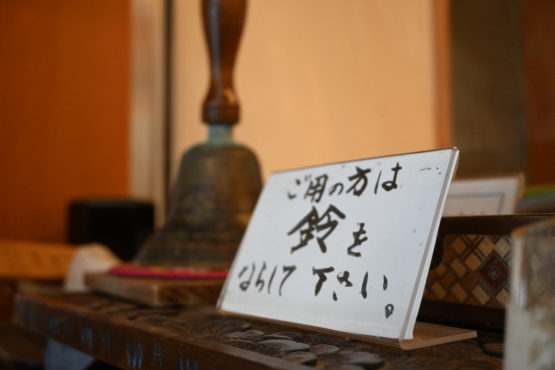 ご用の方は
鈴を
ならして下さい。